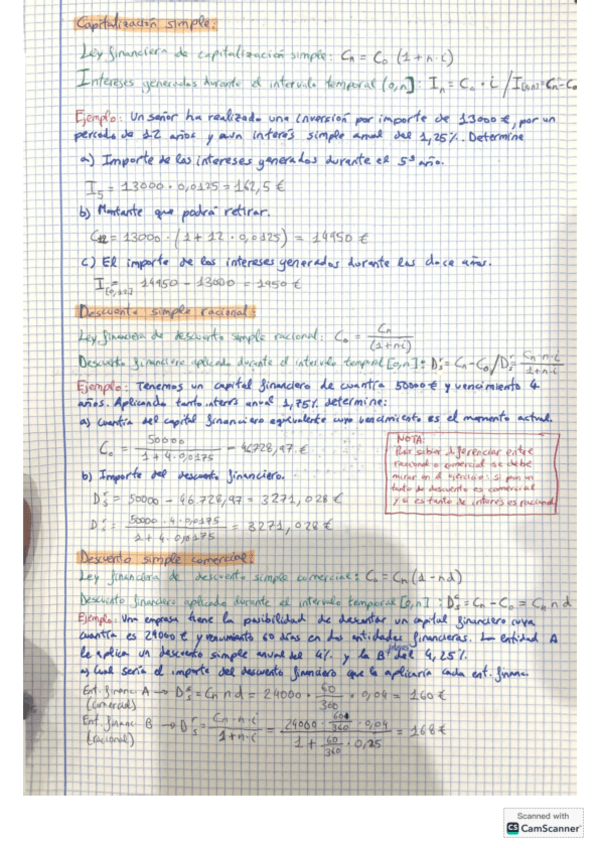 Capitalización simple:
Ley financiera de capitalización simple: Cn = C₀ (1+n·i)
Intereses generados durante el intervalo temporal (0,n]: In = C₀ · i / I[0,n] = Cn - C₀
Ejemplo: Un señor ha realizado una inversión por importe de 13000 €, por un
periodo de 12 años y a un interés simple anual del 1,25%. Determine
a) Importe de los intereses generados durante el 5º año.
I₅ = 13000 · 0,0125 = 162,5 €
b) Montante que podrá retirar.
C₁₂ = 13000 · (1 + 12 · 0,0125) = 14950 €
c) El importe de los intereses generados durante los doce años.
I[0,12] = 14950 - 13000 = 1950 €
Descuento simple racional:
Ley financiera de descuento simple racional: C₀ = Cn / (1+ni)
Descuento financiero aplicado durante el intervalo temporal [0,n]: Dsʳ = Cn - C₀ / Dsʳ = Cn·n·i / 1+n·i
Ejemplo: Tenemos un capital financiero de cuantía 50000 € y vencimiento 4
años. Aplicando tanto interés anual 1,75% determine:
a) cuantía del capital financiero equivalente cuyo vencimiento es el momento actual.
C₀ = 50000 / 1 + 4·0,0175 - 46728,97 €
b) Importe del descuento financiero.
Dsʳ = 50000 - 46.728,97 = 3271,028 €
Dsʳ = 50000 · 4 · 0,0175 / 1 + 4 · 0,0175 = 3271,028 €
NOTA:
Para saber diferenciar entre
racional o comercial se debe
mirar en el ejercicio: si pone un
tanto de descuento es comercial
y si es tanto de interés es racional
Descuento simple comercial:
Ley financiera de descuento simple comercial: C₀ = Cn (1 - nd)
Descuento financiero aplicado durante el intervalo temporal [0,n]: Dsᶜ = Cn - C₀ = Cn n d
Ejemplo: Una empresa tiene la posibilidad de descontar un capital financiero cuya
cuantía es 24000 € y vencimiento 60 días en dos entidades financieras. La entidad A
le aplica un descuento simple anual del 4% y la B del 4,25%.
a) Cual sería el importe del descuento financiero que le aplicaría cada ent. financ.
Ent. financ A → Dsᶜ = Cn n d = 24000 · 60/360 · 0,04 = 160 €
(comercial)
Ent financ B → Dsʳ = Cn·n·i / 1+n·i = 24000 · 60/360 · 0,04 / 1 + 60/360 · 0,25 = 168 €
(racional)
Scanned with
CS CamScanner